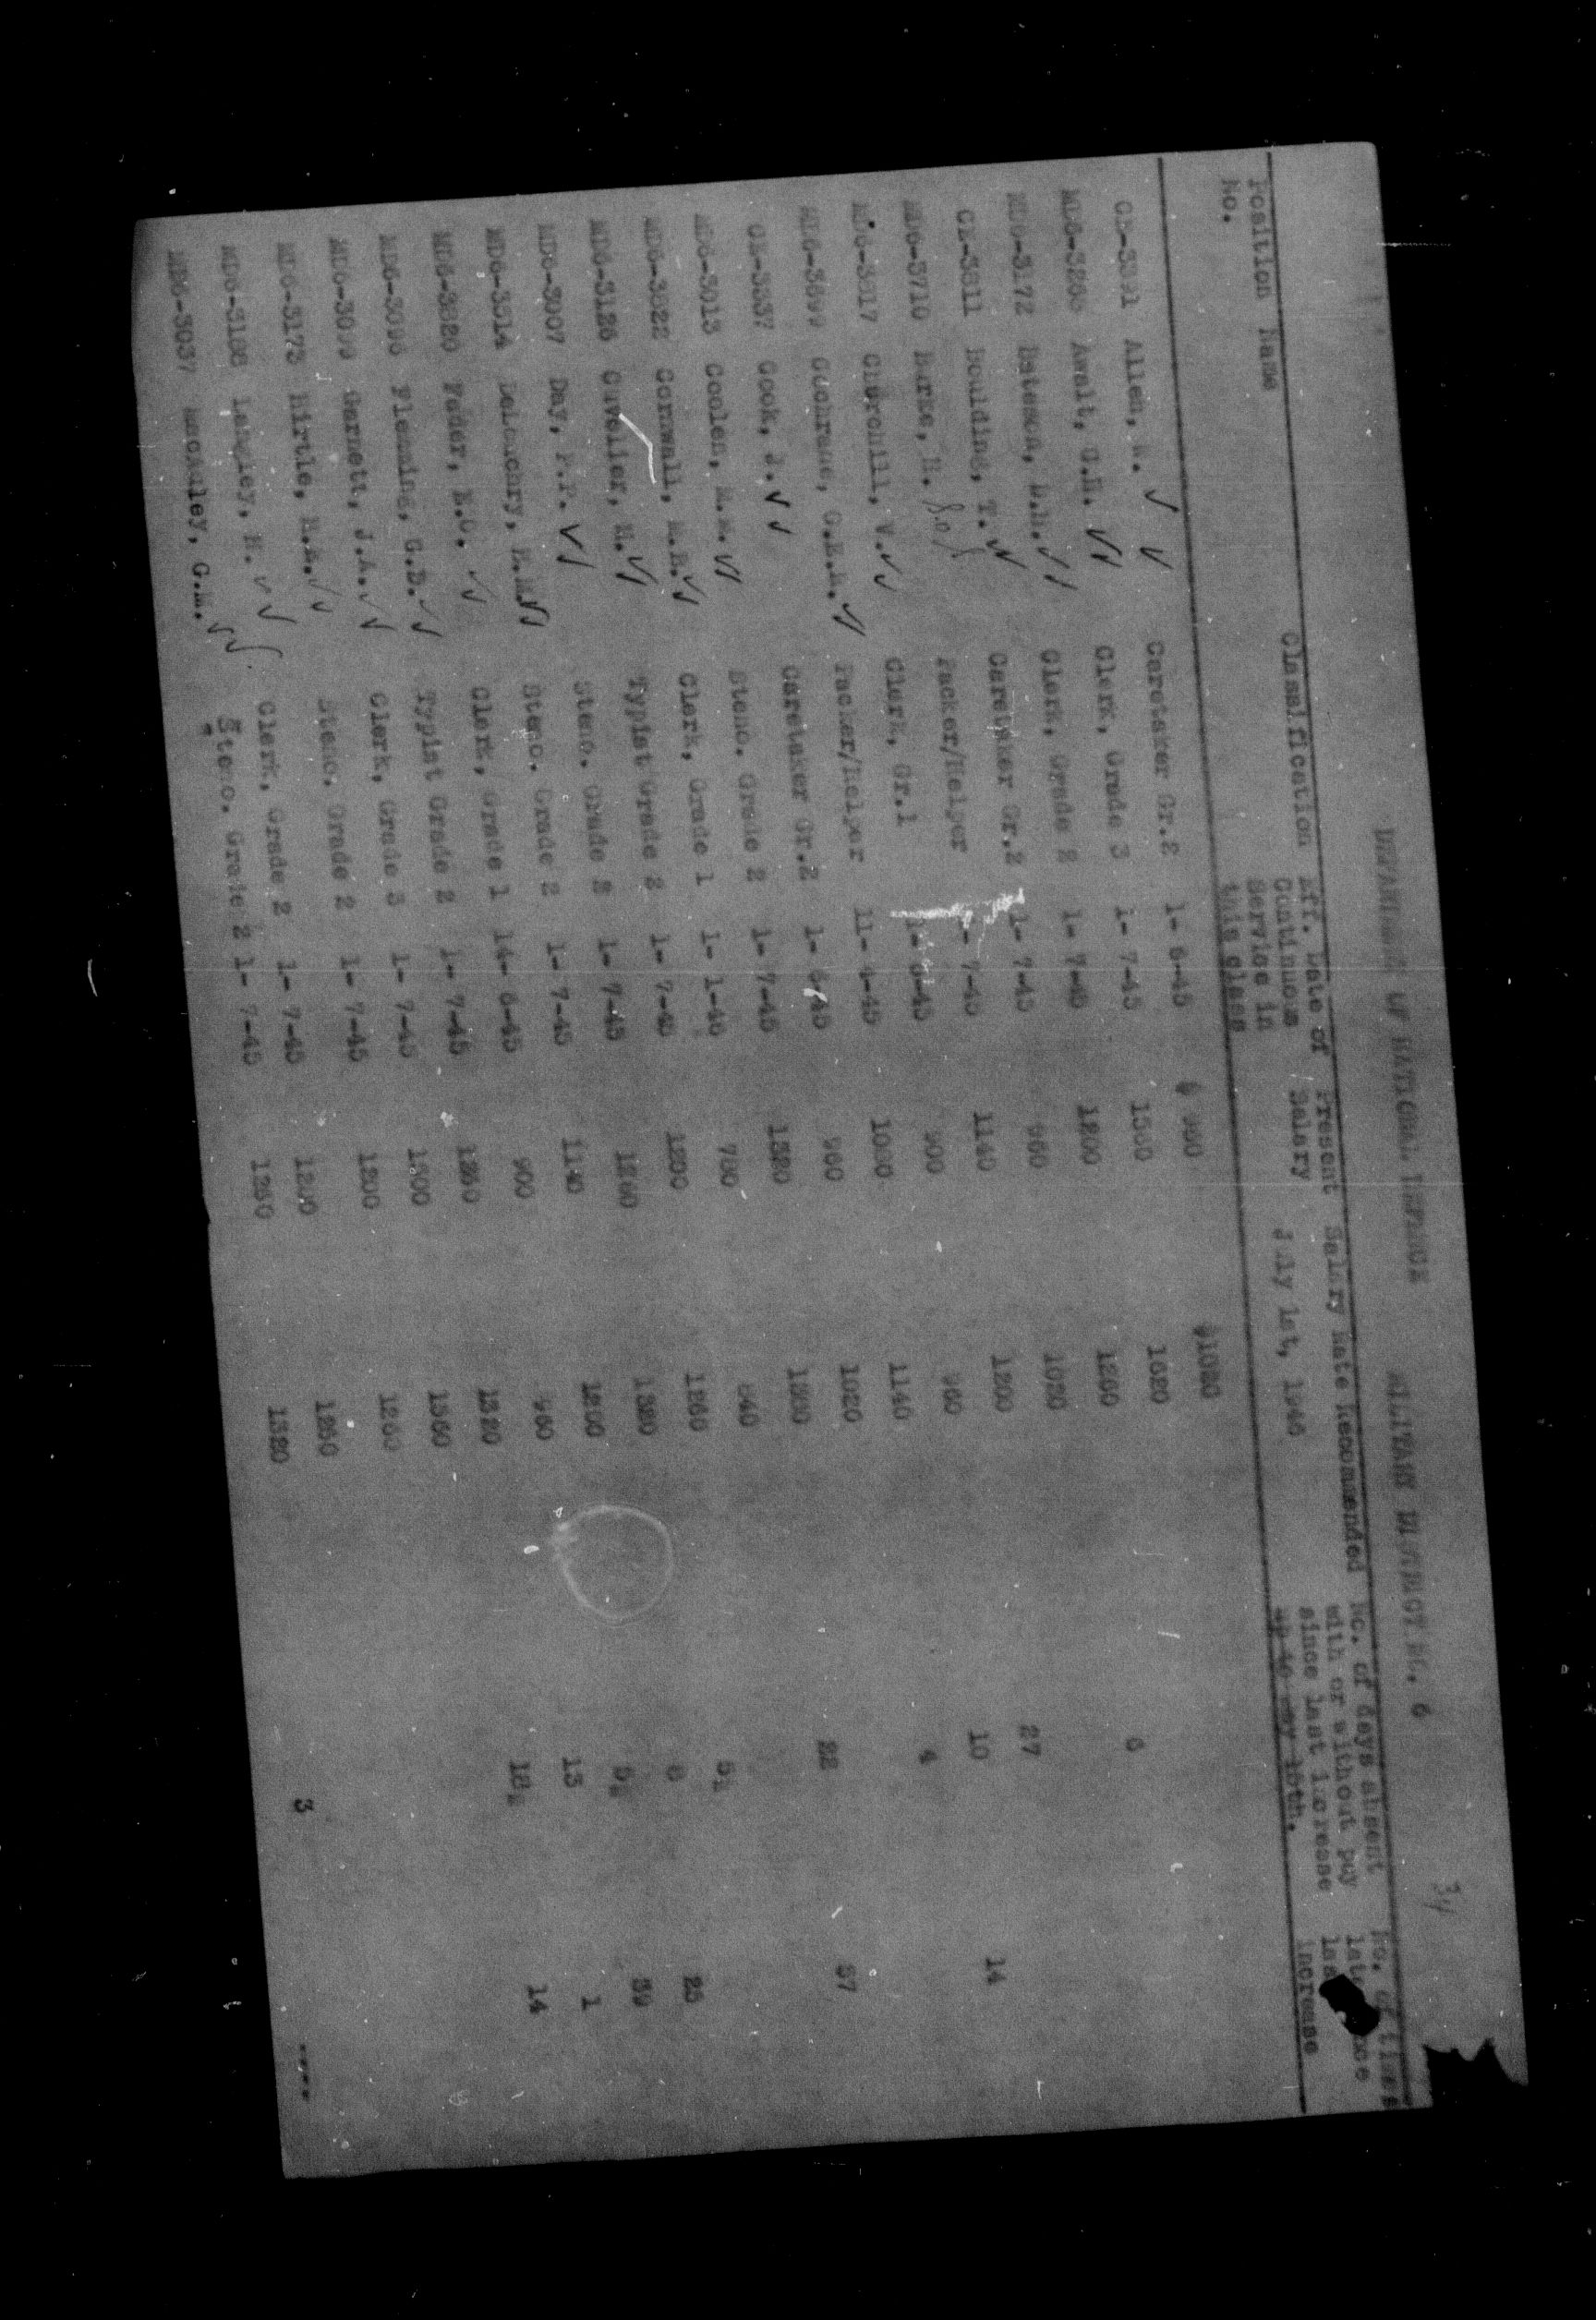 34
DEPARTMENT OF NATIONAL DEFENCE MILITARY DISTRICT NO. 6
Position Name Classification Eff. Date of Present Salary Rate Recommended No. of days absent No. of times
No. Continuous Salary July 1st, 1946 with or without pay late
Service in since last increase
this class up to May 15th. increase
CE-3391 Allen, W. Caretaker Gr.2 1- 6-45 $ 960 $1020
MD6-3266 Awalt, G.H. Clerk, Grade 3 1- 7-45 1500 1620
MD6-3172 Bateson, D.H. Clerk, Grade 2 1- 7-45 1200 1260 6
CE-3811 Boulding, T. Caretaker Gr.2 1- 7-45 960 1020
MD6-3710 Burke, H. Packer/Helper 1- 7-45 1140 1200 27
MD6-3817 Churchill, V. Clerk, Gr.1 1- 6-45 900 960 10 14
MD6-3699 Cochrane, G.E.A. Packer/Helper 11- 4-45 1080 1140 4
CE-3337 Cook, J. Caretaker Gr.2 1- 6-45 960 1020
MD6-3013 Coolen, M.M. Steno. Grade 2 1- 7-45 1320 1380 22 37
MD6-3822 Cornwall, M.R. Clerk, Grade 1 1- 1-46 780 840
MD6-3126 Cuvelier, M. Typist Grade 2 1- 7-45 1200 1260 5½
MD6-3007 Day, F.P. Steno. Grade 2 1- 7-45 1260 1320 6 25
MD6-3514 DeLouchry, H.M. Steno. Grade 2 1- 7-45 1140 1200 5½ 39
MD6-3820 Feder, E.O. Clerk, Grade 1 14- 6-45 900 960 13 1
MD6-3096 Flemming, G.D. Typist Grade 2 1- 7-45 1260 1320 18½ 14
MD6-3099 Garnett, J.A. Clerk, Grade 3 1- 7-45 1500 1560
MD6-3173 Hirtle, R.A. Steno. Grade 2 1- 7-45 1200 1260
MD6-3188 Langley, H. Clerk, Grade 2 1- 7-45 1200 1260
MD6-3037 MacAuley, G.M. Steno. Grade 2 1- 7-45 1260 1320 3 ----